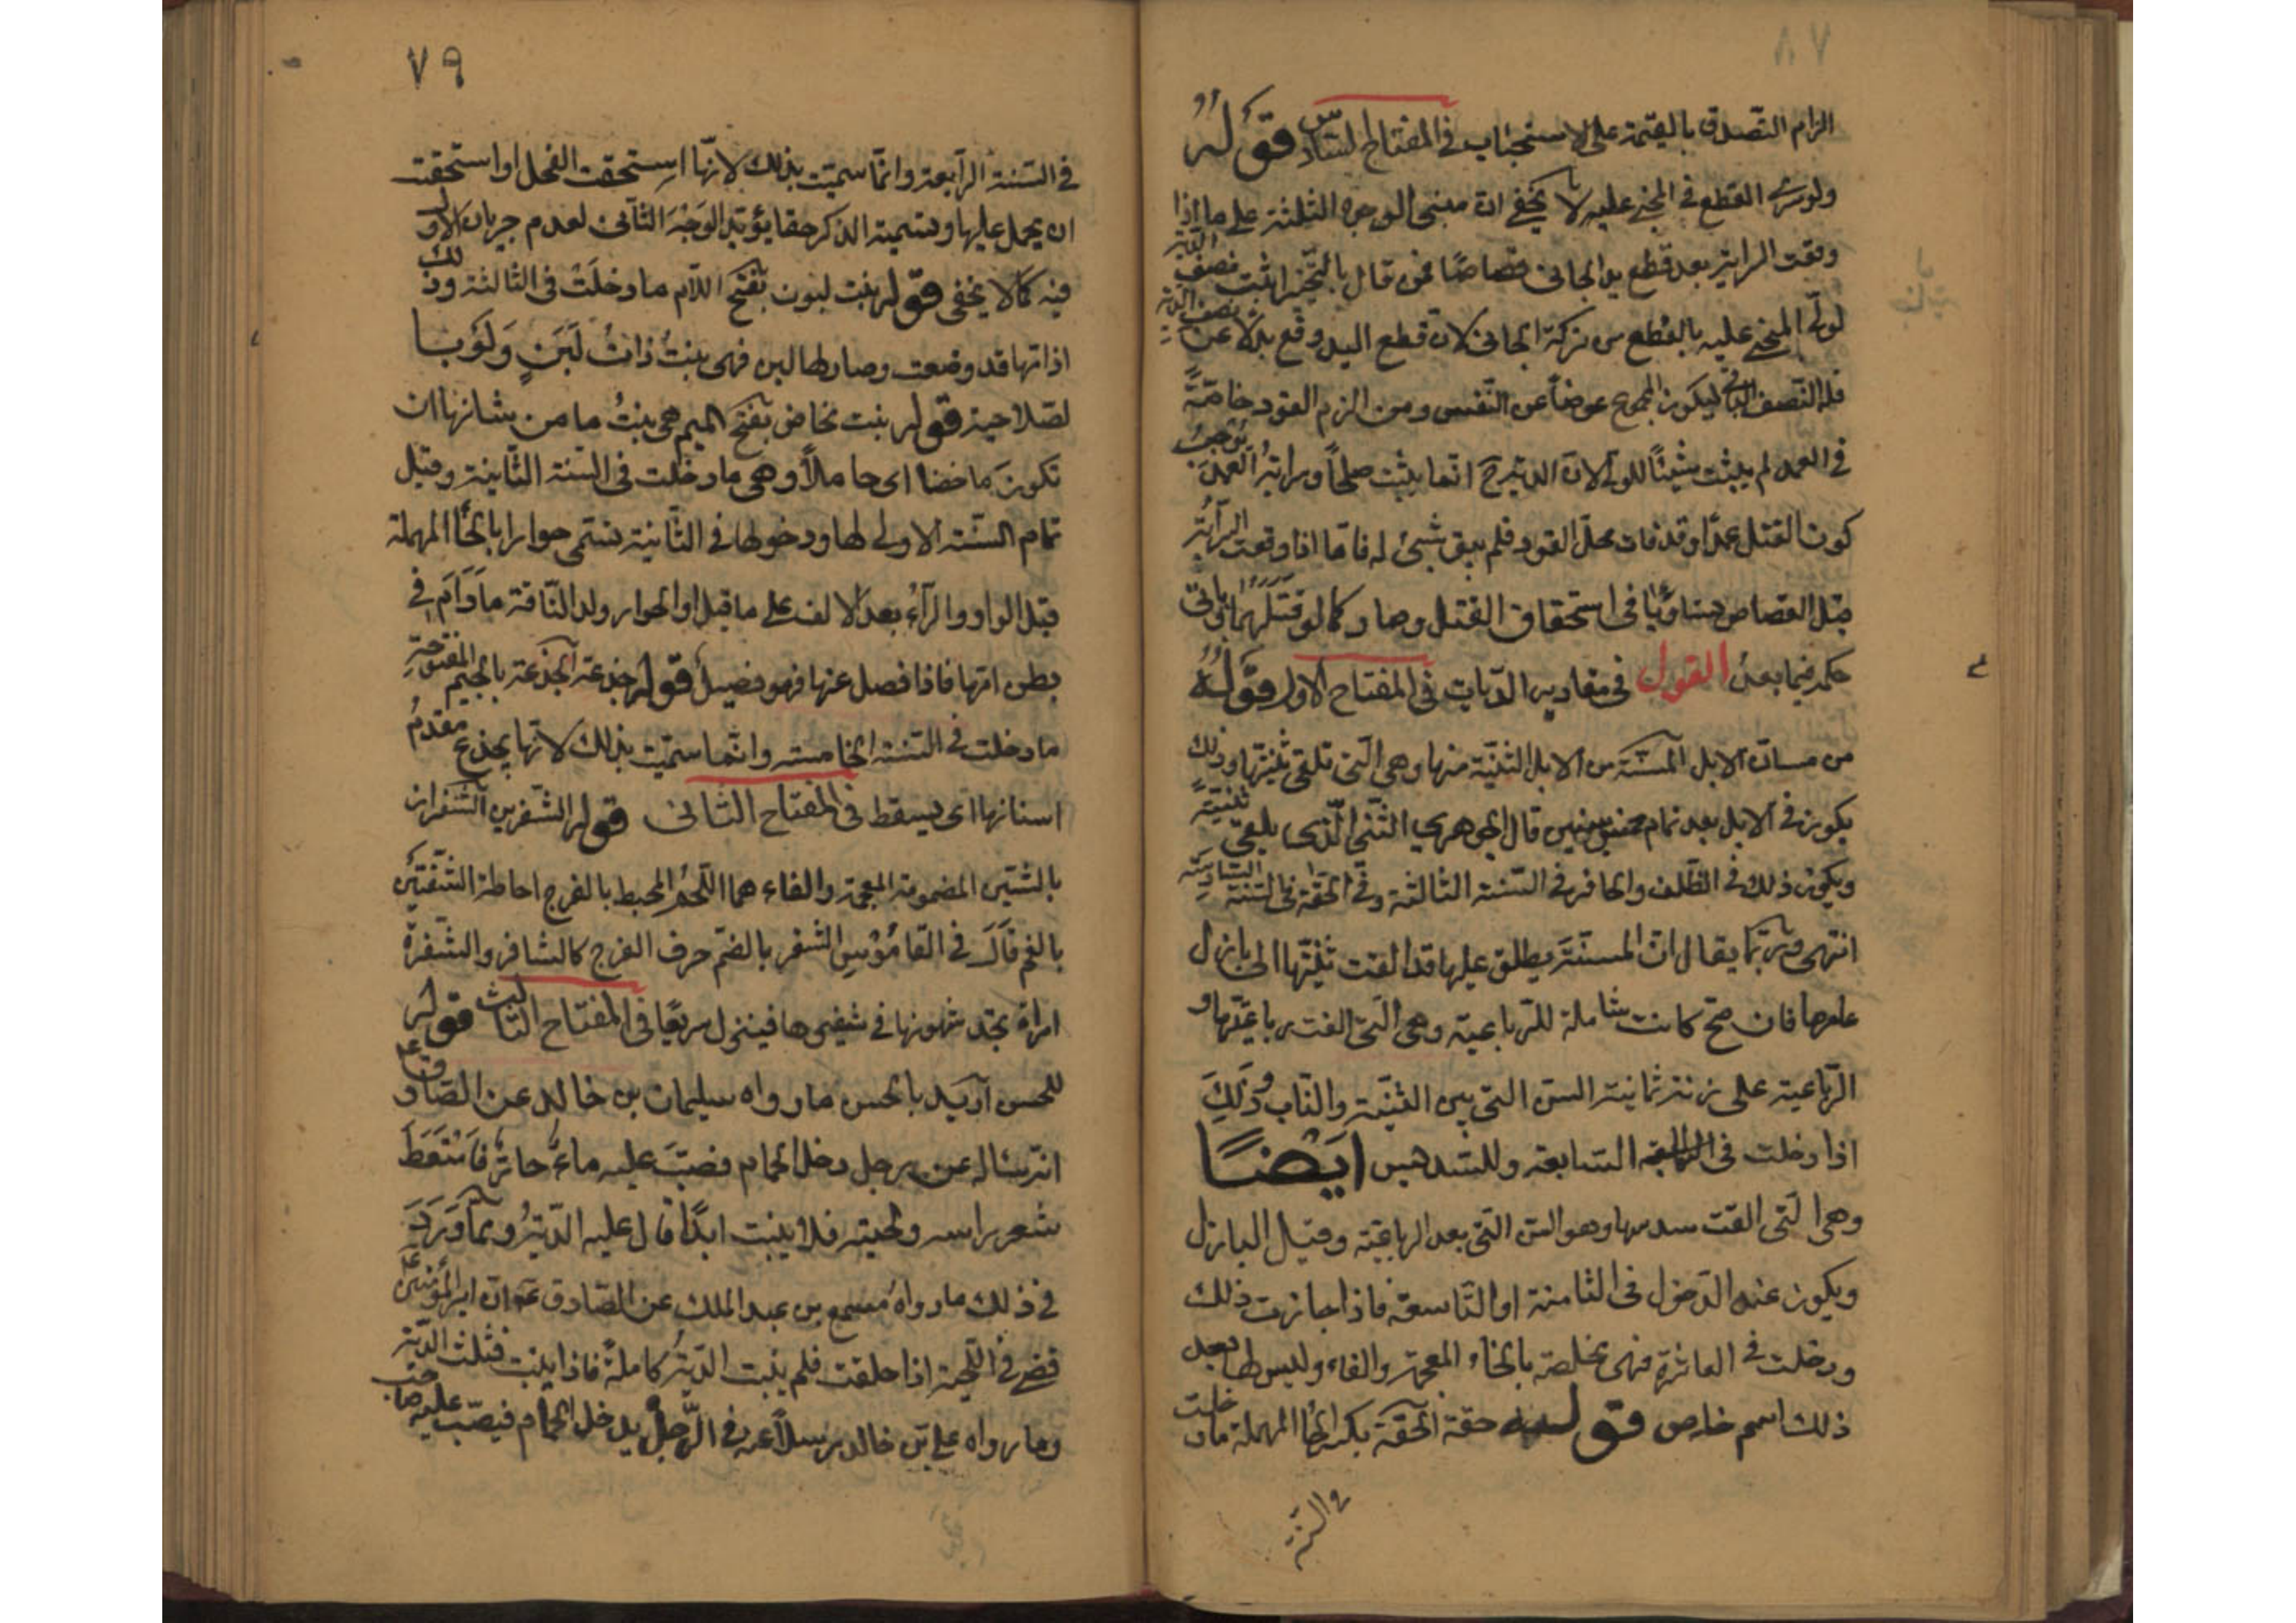 الزام التصدق بالقيمة على الاستحباب في المفتاح السادس قوله
ولو سرى القطع في المجني عليه لا يخفى ان مبنى الوجوه الثلثة على ما اذا
وقعت السراية بعد قطع يد الجاني قصاصا فمن قال بالتخيير اثبت نصف الدية
لولي المجني عليه بالقطع من تركة الجاني لان قطع اليد وقع بدلا عن نصف الدية
فله النصف الباقي ليكون المجموع عوضا عن النفس ومن الزم القود خاصة
في العمد لم يثبت شيئا للولي لان الدية ح انما يثبت صلحا وسراية العمد توجب
كون القتل عمدا وقد فات محل القود فلم يبق شيئ له فاما اذا وقعت السراية
قبل القصاص تساويا في استحقاق القتل وصار كما لو قتلهما وياتي
حكمه فيما بعد القول في مقادير الديات في المفتاح الاول قوله
من مسان الابل المسنة من الابل الثنية منها وهي التي تلقى ثنيتها وذلك
يكون في الابل بعد تمام خمس سنين قال الجوهري الثني الذي يلقى ثنيته
ويكون ذلك في الظلف والحافر في السنة الثالثة وفي الخف في السنة السادسة
انتهى وربما يقال ان المسنة يطلق عليها قد القت ثنيتها الى بازل
عامها فان صح كانت شاملة للرباعية وهي التي القت رباعيتها و
الرباعية على زنة ثمانية السن التي بين الثنية والناب وذلك
اذا دخلت في السابعة وللسديس ايضا
وهي التي القت سدسها وهو السن التي بعد الرباعية وقبل البازل
ويكون عند الدخول في الثامنة او التاسعة فاذا جازت ذلك
ودخلت في العاشرة فهي مخلفة بالخاء المعجمة والفاء وليس لها بعد
ذلك اسم خاص قوله حقة الحقة بكسر الحا المهملة ما دخلت
في السنة
٧٩
في السنة الرابعة وانما سميت بذلك لانها استحقت الفحل او استحقت
ان يحمل عليها وتسمية الذكر حقا يؤيد الوجه الثاني لعدم جريان الاول
فيه كما لا يخفى قوله بنت لبون بفتح اللام ما دخلت في الثالثة وذلك
اذ امها قد وضعت وصار لها لبن فهي بنت ذات لبن ولو بـا
لصلاحية قوله بنت مخاض بفتح الميم هي بنت ما من شانها ان
تكون ماخضا اي حاملا وهي ما دخلت في السنة الثانية وقبل
تمام السنة الاولى لها ودخولها في الثانية تسمى حوارا بالحا المهملة
قبل الواو والراء بعد الالف على ما قيل او الحوار ولد الناقة ما دام في
بطن امها فاذا فصل عنها فهو فصيل قوله جذعة الجذعة بالجيم المفتوحة
ما دخلت في السنة الخامسة وانما سميت بذلك لانها يجذع مقدم
اسنانها اي يسقط في المفتاح الثاني قوله الشفرين الشفران
بالشين المضمومة المعجمة والفاء هما اللحم المحيط بالفرج احاطة الشفتين
بالفم قال في القاموس الشفر بالضم حرف الفرج كالشافر والشفرة
امراة تجد شهوتها في شفيرها فينزل سريعا في المفتاح الثالث قوله
للحسن اريد بالحسن ما رواه سليمان بن خالد عن الصادق ع
انه ساله عن رجل دخل الحمام فصب عليه ماء حار فامتعط
شعر راسه ولحيته فلا ينبت ابدا قال عليه الدية ومما ورد
في ذلك ما رواه مسمع بن عبد الملك عن الصادق ع ان امير المؤمنين ع
قضى في اللحية اذا حلقت فلم ينبت الدية كاملة فاذا ينبت فثلث الدية
وما رواه علي بن خالد مرسلا عنه في الرجل يدخل الحمام فيصب عليه صاحب